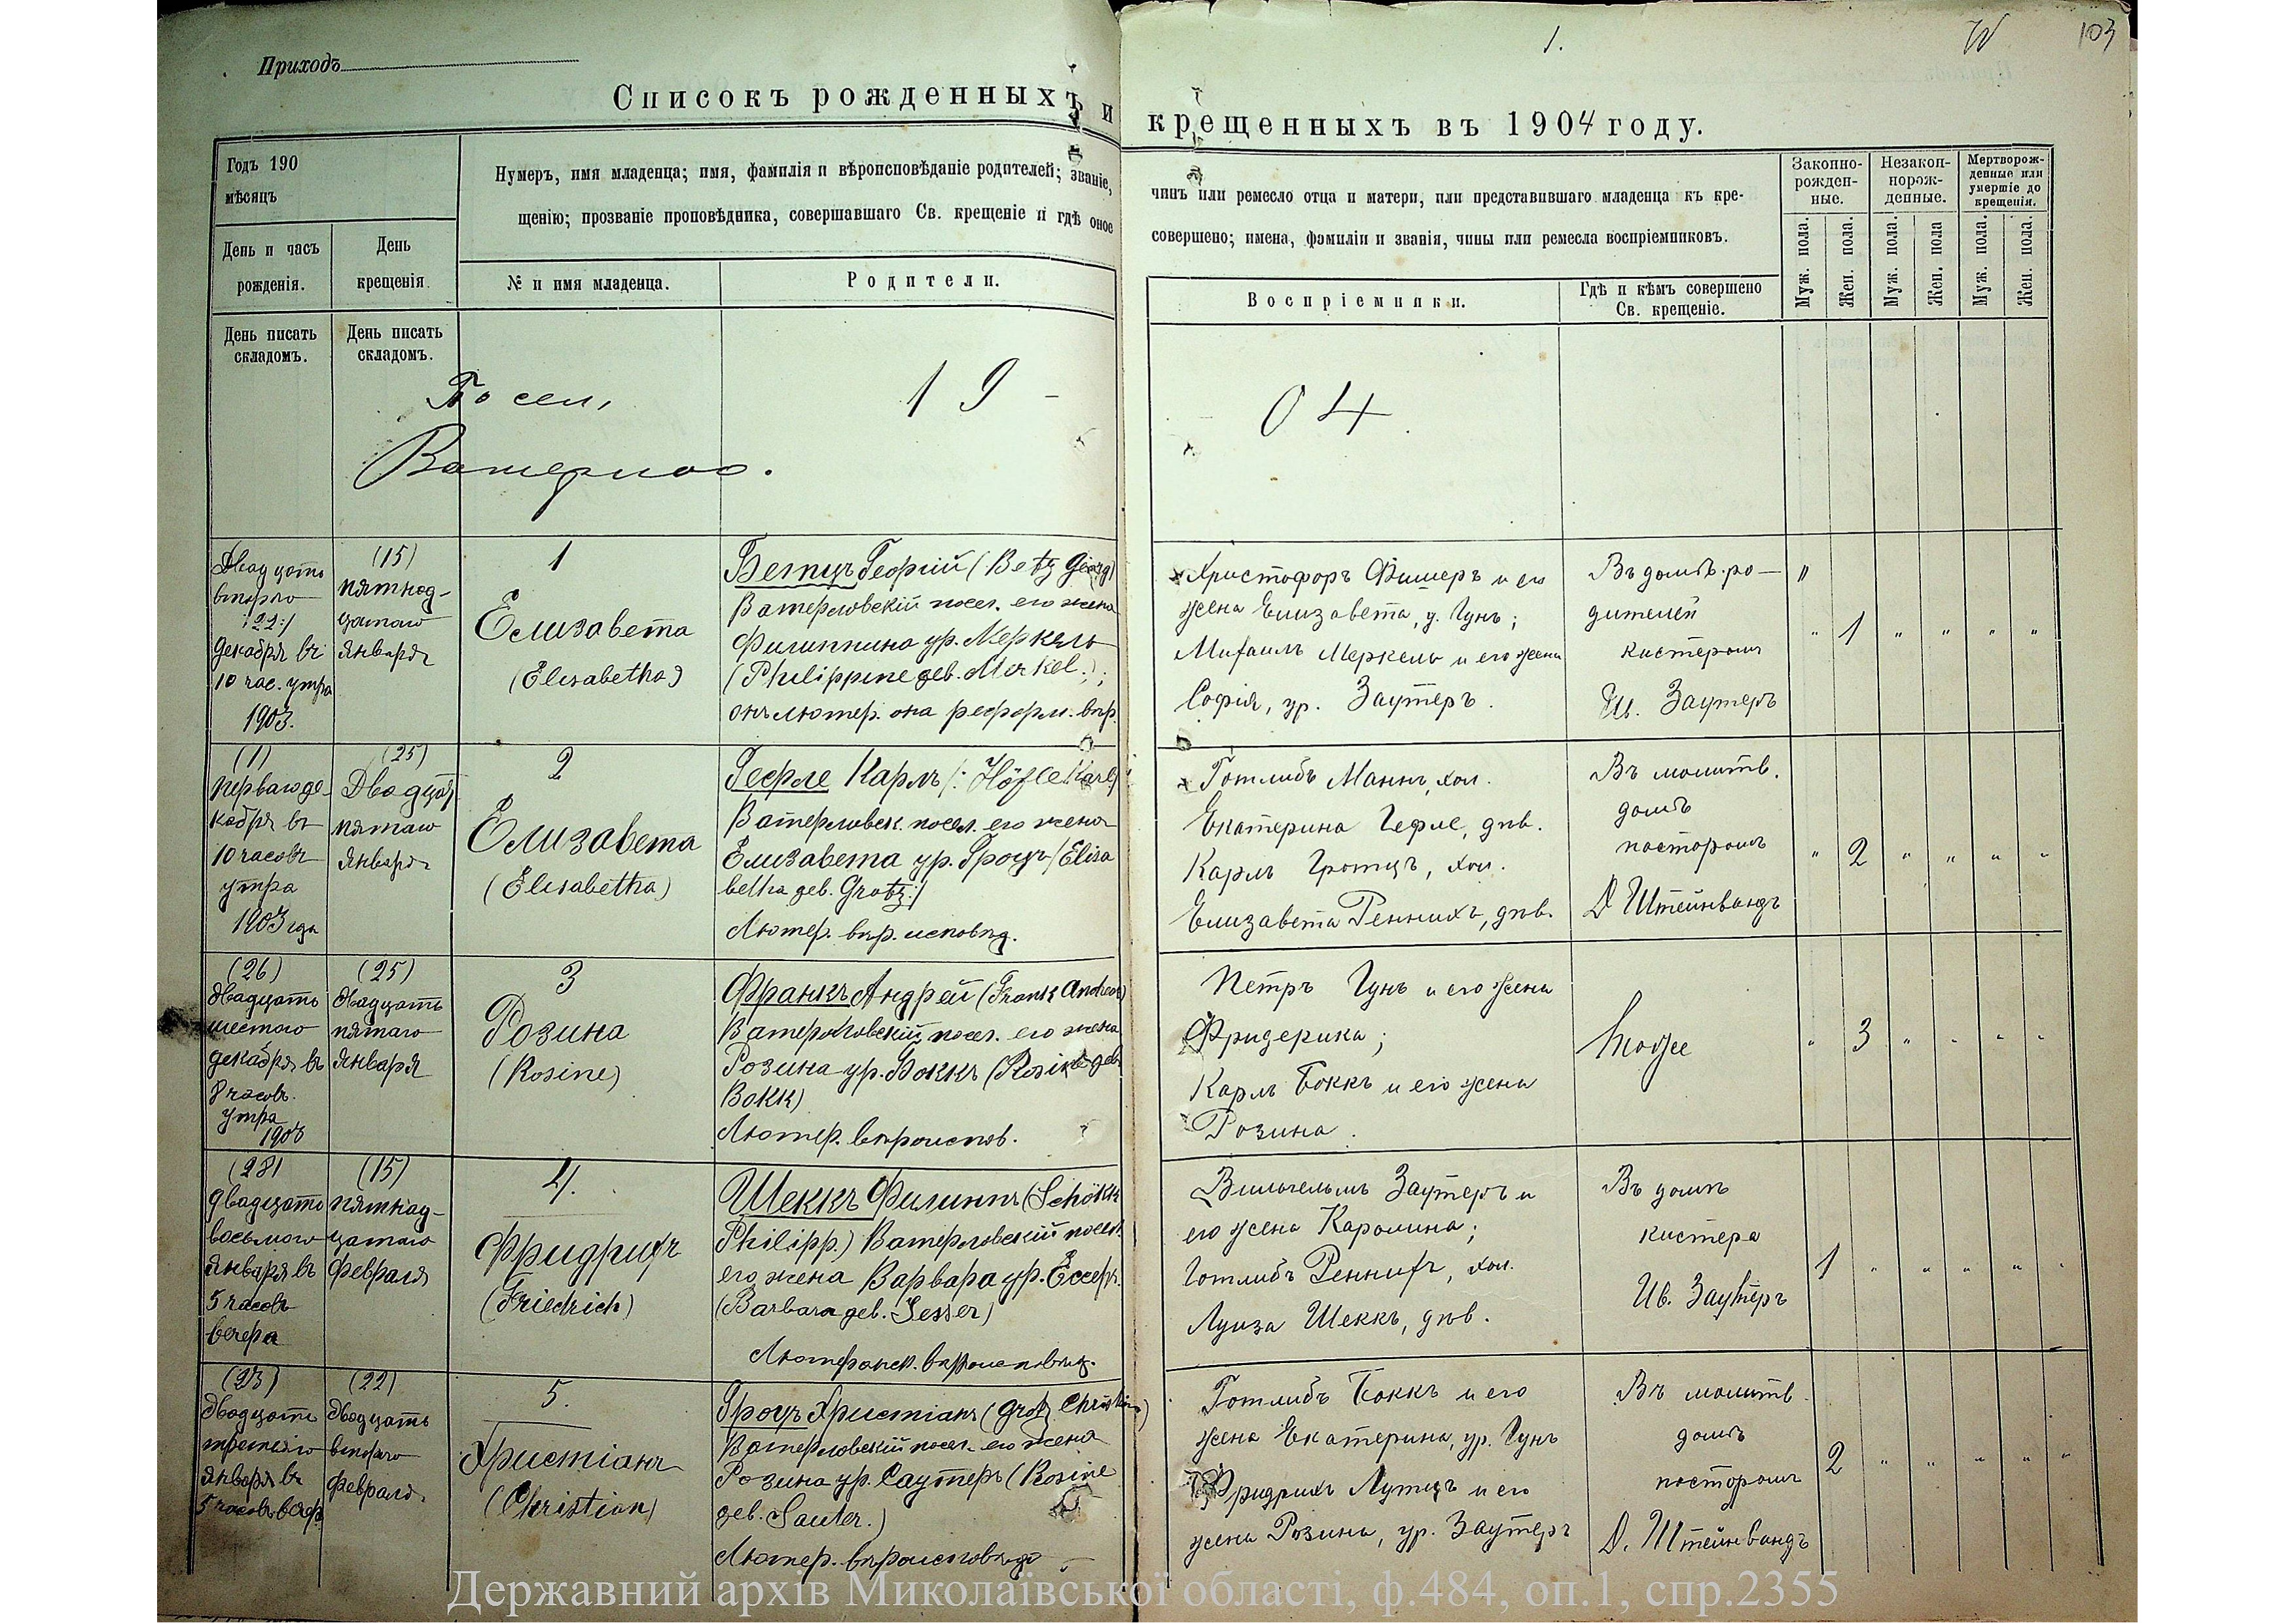 Приходъ
1.
103
Списокъ рожденныхъ и крещенныхъ въ 1904 году.
Годъ 190
мѣсяцъ
Нумеръ, имя младенца; имя, фамилія и вѣроисповѣданіе родителей; званіе,
щенію; прозваніе проповѣдника, совершавшаго Св. крещеніе и гдѣ оное
чинъ или ремесло отца и матери, или представившаго младенца къ кре-
совершено; имена, фамиліи и званія, чины или ремесла воспріемниковъ.
Законно-
рожден-
ные.
Незакон-
норож-
денные.
Мертворож-
денные или
умершіе до
крещенія.
День и часъ
рожденія.
День
крещенія.
№ и имя младенца.
Родители.
Воспріемники.
Гдѣ и кѣмъ совершено
Св. крещеніе.
Муж. пола.
Жен. пола.
Муж. пола.
Жен. пола
Муж. пола.
Жен. пола.
День писать
складомъ.
День писать
складомъ.
Посел,
Ватерлоо.
19-
04.
Двадцать
второго
/22:/
декабря въ
10 час. утра
1903.
(15)
пятнад-
цатаго
января
1
Елизавета
(Elisabetha)
Бетцъ Георгій (Betz Georg)
Ватерловскій посел. его жена
Филиппина ур. Меркель
(Philippine geb. Merkel.);
онъ лютер. она реформ. вѣр.
Христофоръ Фишеръ и его
жена Елизавета, у. Гунъ;
Михаилъ Меркель и его жена
Софія, ур. Заутеръ.
Въ домѣ ро-
дителей
кистеромъ
Ив. Заутеръ
" 1 " " " "
(1)
перваго де-
кабря въ
10 часовъ
утра
1903 года
(25)
Двадцать
пятаго
января
2
Елизавета
(Elisabetha)
Гефле Карлъ /: Höfle Karl
Ватерловск. посел. его жена
Елизавета ур. Гроцъ /Elisa
betha geb. Grotz:/
Лютер. вѣр. исповѣд.
Готлибъ Маннъ, хол.
Екатерина Гефле, дѣв.
Карлъ Гротцъ, хол.
Елизавета Реннихъ, дѣв.
Въ молитв.
домѣ
пасторомъ
Д Штейнвандъ
" 2 " " " "
(26)
двадцать
шестого
декабря въ
8 часовъ
утра
1903
(25)
двадцать
пятаго
января
3
Розина
(Rosine)
Франкъ Андрей (Frank Andreas)
Ватерловскій посел. его жена
Розина ур. Боккъ (Rosine geb
Bokk)
Лютер. вѣроиспов.
Петръ Гунъ и его жена
Фридерика;
Карлъ Боккъ и его жена
Розина.
тоже
" 3 " " " "
(28)
двадцать
восьмого
января въ
5 часовъ
вечера
(15)
пятнад-
цатаго
февраля
4.
Фридрихъ
(Friedrich)
Шеккъ Филиппъ (Schökk
Philipp.) Ватерловскій посел.
его жена Варвара ур. Ессеръ.
(Barbara geb. Jesser)
Лютеранск. вѣроисповѣд.
Вильгельмъ Заутеръ и
его жена Каролина;
Готлибъ Реннихъ, хол.
Луиза Шеккъ, дѣв.
Въ домѣ
кистера
Ив. Заутеръ
1 " " " " "
(23)
двадцать
третьяго
января въ
5 часовъ вечер.
(22)
двадцать
второго
февраля.
5.
Христіанъ
(Christian)
Гроцъ Христіанъ (Grotz Christian)
Ватерловскій посел. его жена
Розина ур. Саутеръ (Rosine
geb. Sauter.)
Лютер. вѣроисповѣд.
Готлибъ Боккъ и его
жена Екатерина, ур. Гунъ
Фридрихъ Лутцъ и его
жена Розина, ур. Заутеръ
Въ молитв.
домѣ
пасторомъ
Д. Штейнвандъ
2 " " " " "
Державний архів Миколаївської області, ф.484, оп.1, спр.2355